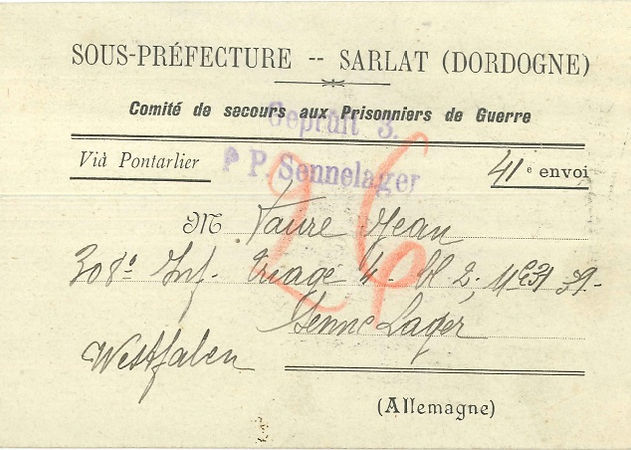 SOUS-PRÉFECTURE -- SARLAT (DORDOGNE)
Comité de secours aux Prisonniers de Guerre
Geprüft 3.
P. Sennelager
Viâ Pontarlier
41e envoi
26
M Faure Jean
308e Inf. triage 4 bl 2,
Senne Lager
Westfalen
(Allemagne)